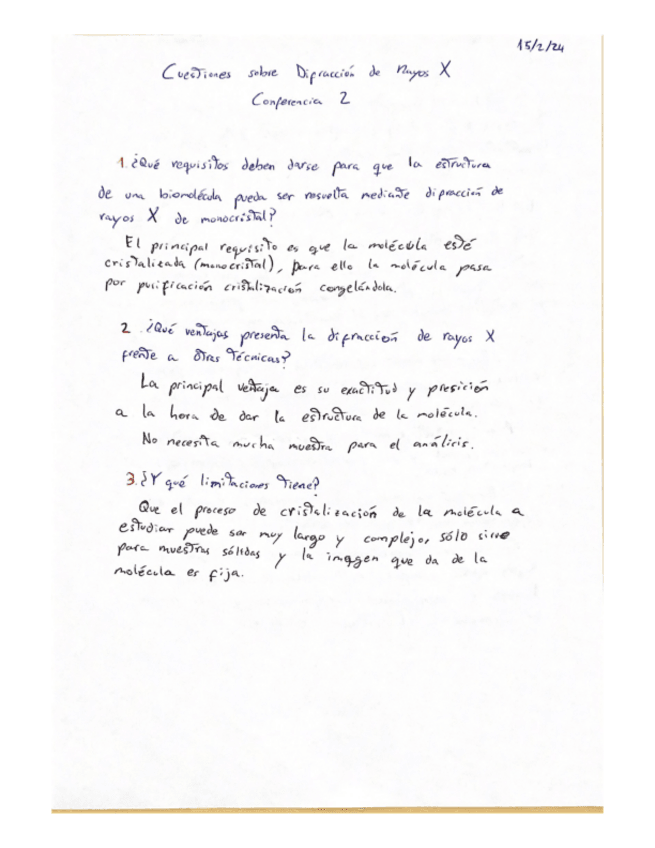 15/2/24
Cuestiones sobre Difracción de Rayos X
Conferencia 2
1. ¿Qué requisitos deben darse para que la estructura
de una biomolécula pueda ser resuelta mediante difracción de
rayos X de monocristal?
El principal requisito es que la molécula esté
cristalizada (monocristal), para ello la molécula pasa
por purificación cristalización congelándola.
2. ¿Qué ventajas presenta la difracción de rayos X
frente a otras técnicas?
La principal ventaja es su exactitud y presición
a la hora de dar la estructura de la molécula.
No necesita mucha muestra para el análisis.
3. ¿Y qué limitaciones tiene?
Que el proceso de cristalización de la molécula a
estudiar puede ser muy largo y complejo, sólo sirve
para muestras sólidas y la imagen que da de la
molécula es fija.